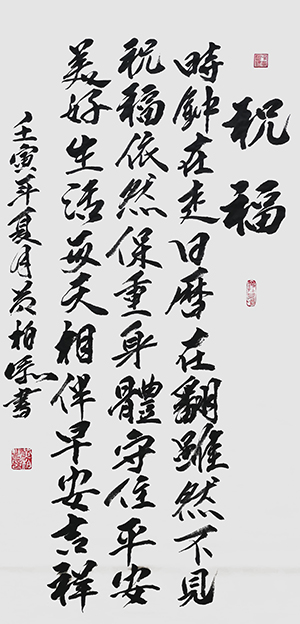 祝福
時鐘在走日曆在翻雖然不見
祝福依然保重身體守住平安
美好生活每天相伴早安吉祥
壬寅年夏月黃柏霖書